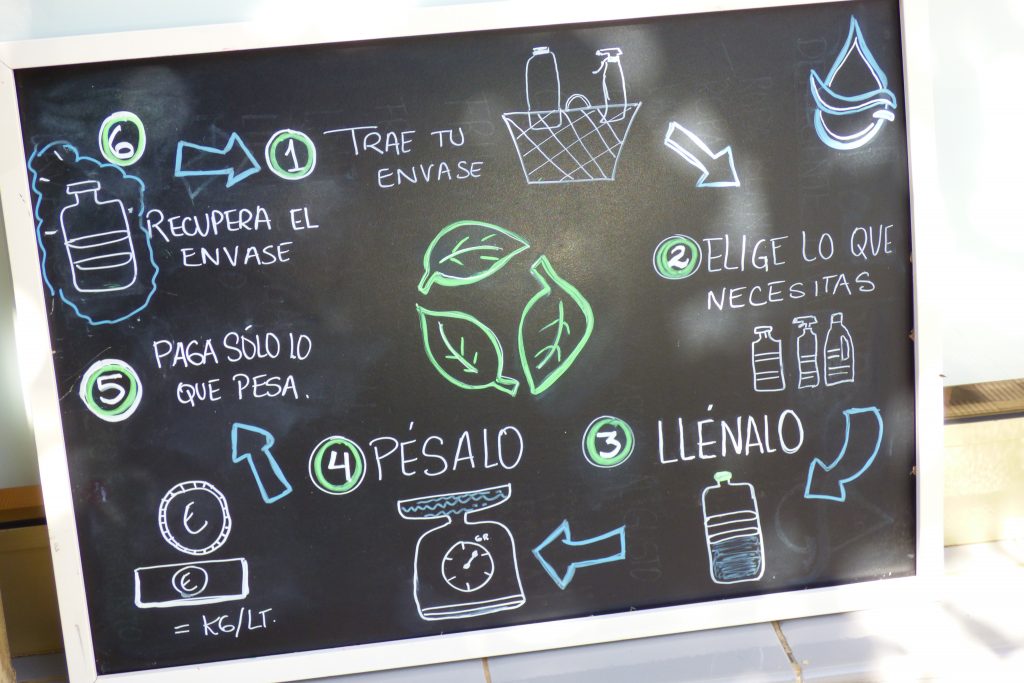 1
TRAE TU
ENVASE
2
ELIGE LO QUE
NECESITAS
3
LLÉNALO
4
PÉSALO
GR
5
PAGA SÓLO LO
QUE PESA.
€
€
= KG/LT.
6
RECUPERA EL
ENVASE